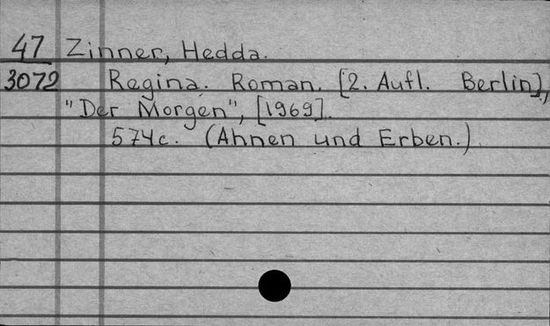 47 Zinner, Hedda.
3072 Regina. Roman. [2. Aufl. Berlin],
"Der Morgen", [1969].
574c. (Ahnen und Erben.)